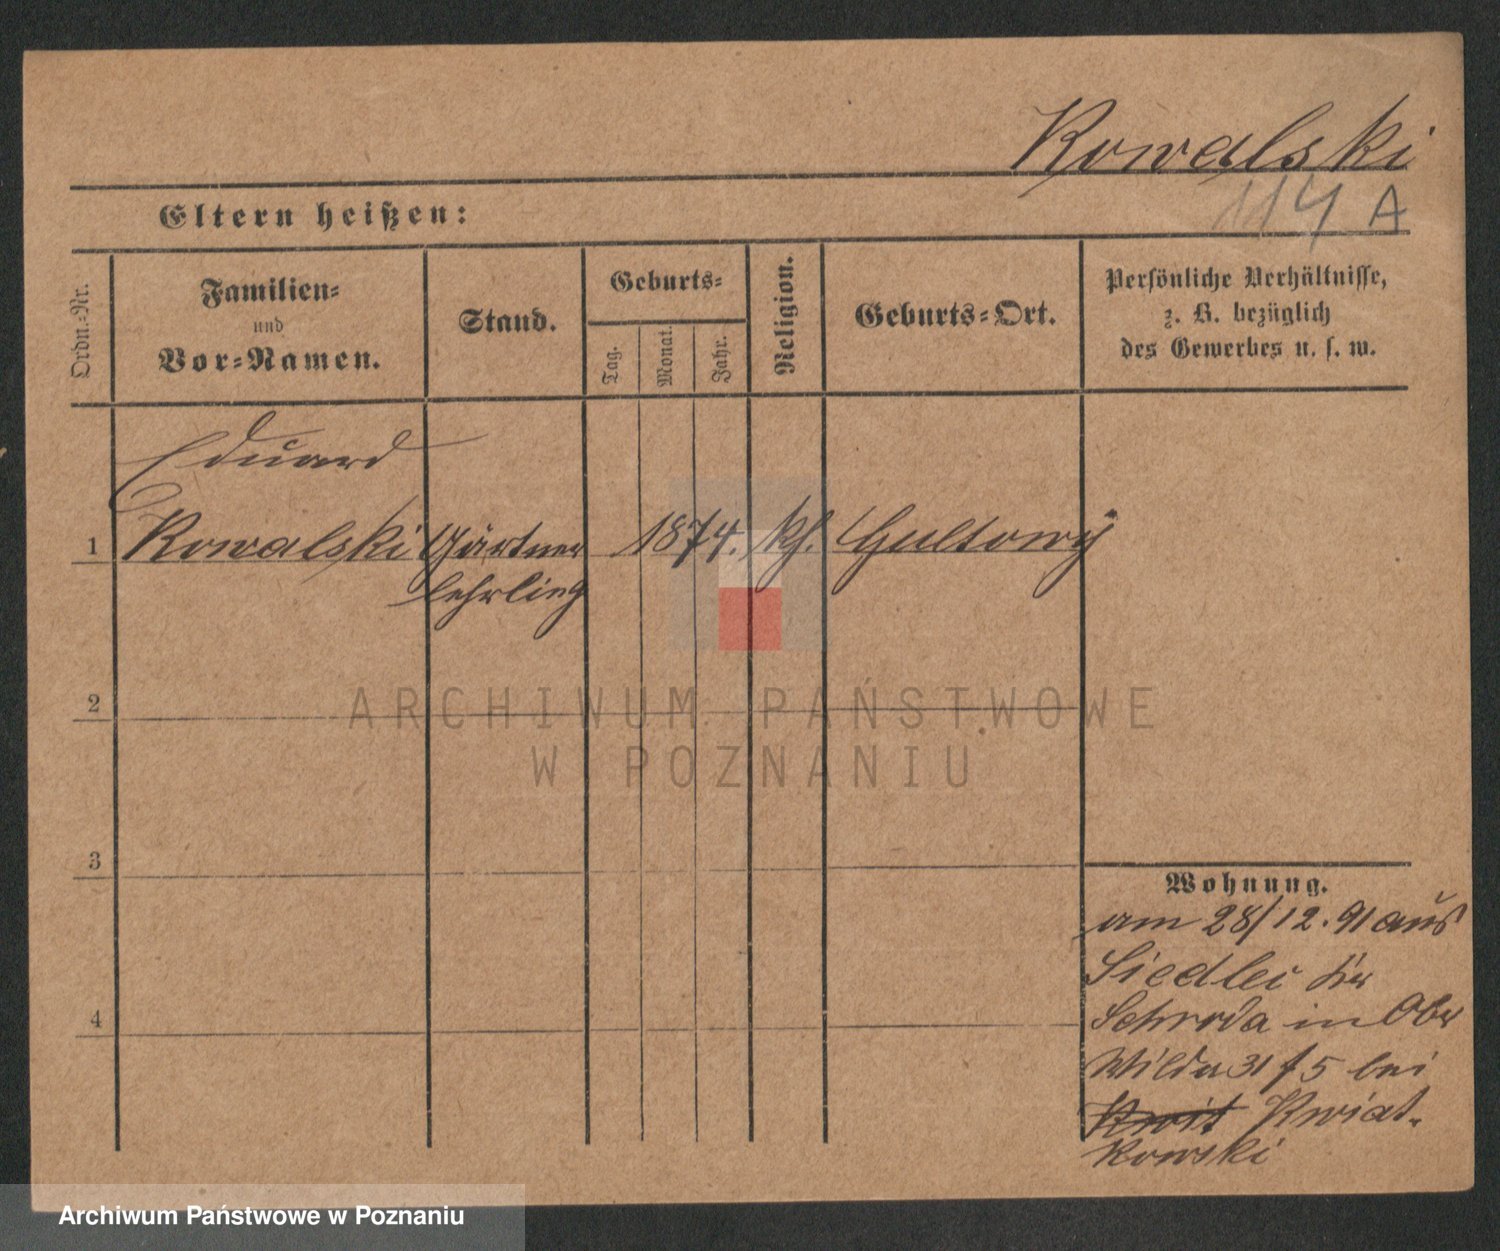 Kowalski
114 A
Eltern heißen:
Ordn.-Nr.
Familien-
und
Vor-Namen.
Stand.
Geburts-
Tag.
Monat.
Jahr.
Religion.
Geburts-Ort.
Persönliche Verhältnisse,
z. B. bezüglich
des Gewerbes u. s. w.
Eduard
1 Kowalski Gärtner 1874. kh. Gultowy
lehrling
2
3
4
Wohnung.
am 28/12.91 aus
Siedlec
Schroda in Ober
Wilda 31 f 5 bei
Kwit Kwiat-
kowski
ARCHIWUM PAŃSTWOWE
W POZNANIU
Archiwum Państwowe w Poznaniu